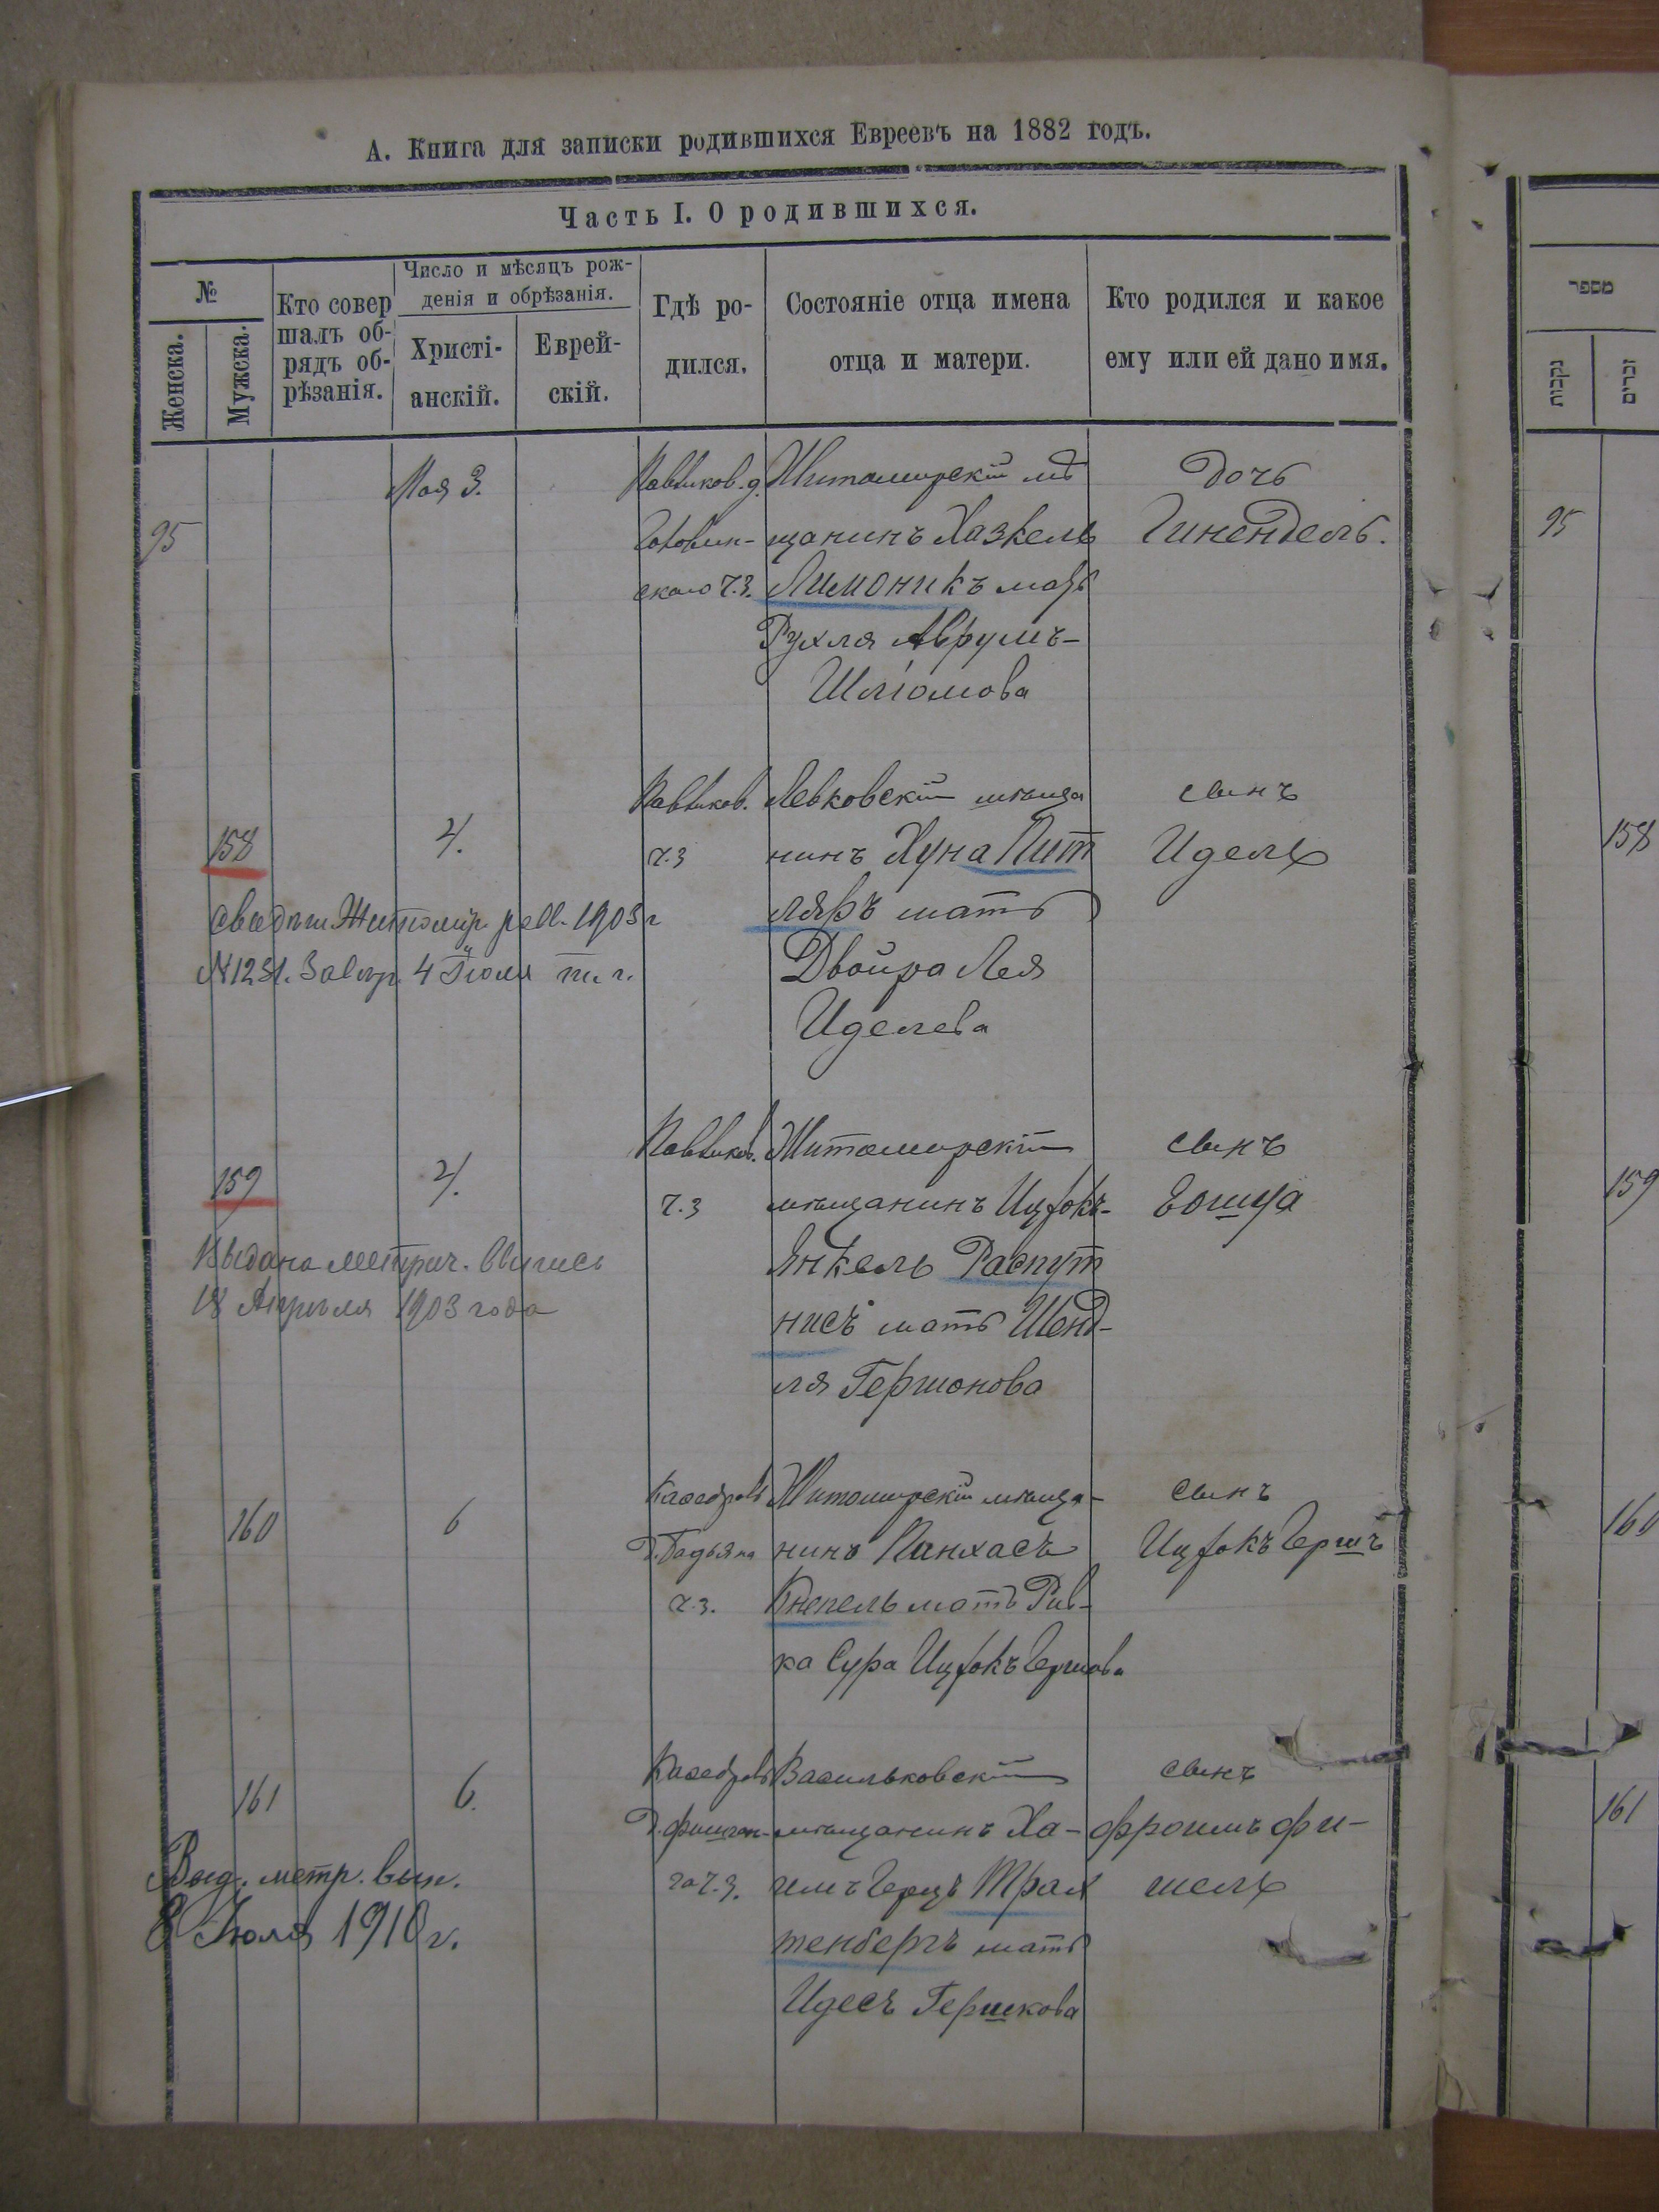 А. Книга для записки родившихся Евреевъ на 1882 годъ.
Часть I. О родившихся.
№
Женска.
Мужска.
Кто совер
шалъ об-
рядъ об-
рѣзанія.
Число и мѣсяцъ рож-
денія и обрѣзанія.
Христі-
анскій.
Еврей-
скій.
Гдѣ ро-
дился.
Состояніе отца имена
отца и матери.
Кто родился и какое
ему или ей дано имя.
95
Мая 3.
Житомирскій мѣ
щанинъ Хазкель
Лимоникъ мать
Рухля Аврумъ-
Шліомова
Дочь
Гинендель.
158
4.
ч.з
Левковскій мѣща
нинъ Хуна Пит
ляръ мать
Двойра Лея
Иделева
сынъ
Идель
1903 г
№ 1231. 4 Іюля т. г.
159
4.
ч.з
Житомирскій
мѣщанинъ Ицхокъ-
Янкель Распут
нисъ мать Шенд-
ля Гершонова
сынъ
Еошуа
Выдана метрич. выпись
18 Апрѣля 1903 года
160
6
ч.з.
Житомирскій мѣща-
нинъ Пинхасъ
Кнепель мать Рив-
ка Сура Ицхокъ Гершова
сынъ
Ицхокъ Гершъ
161
6.
Васильковскій
мѣщанинъ Ха-
имъ Герцъ Трах
тенбергъ мать
Идесъ Гершкова
сынъ
Фроимъ Фи-
шель
Выд. метр. вып.
8 Іюля 1910 г.
מספר
נקבות
זכרים
95
158
159
160
161